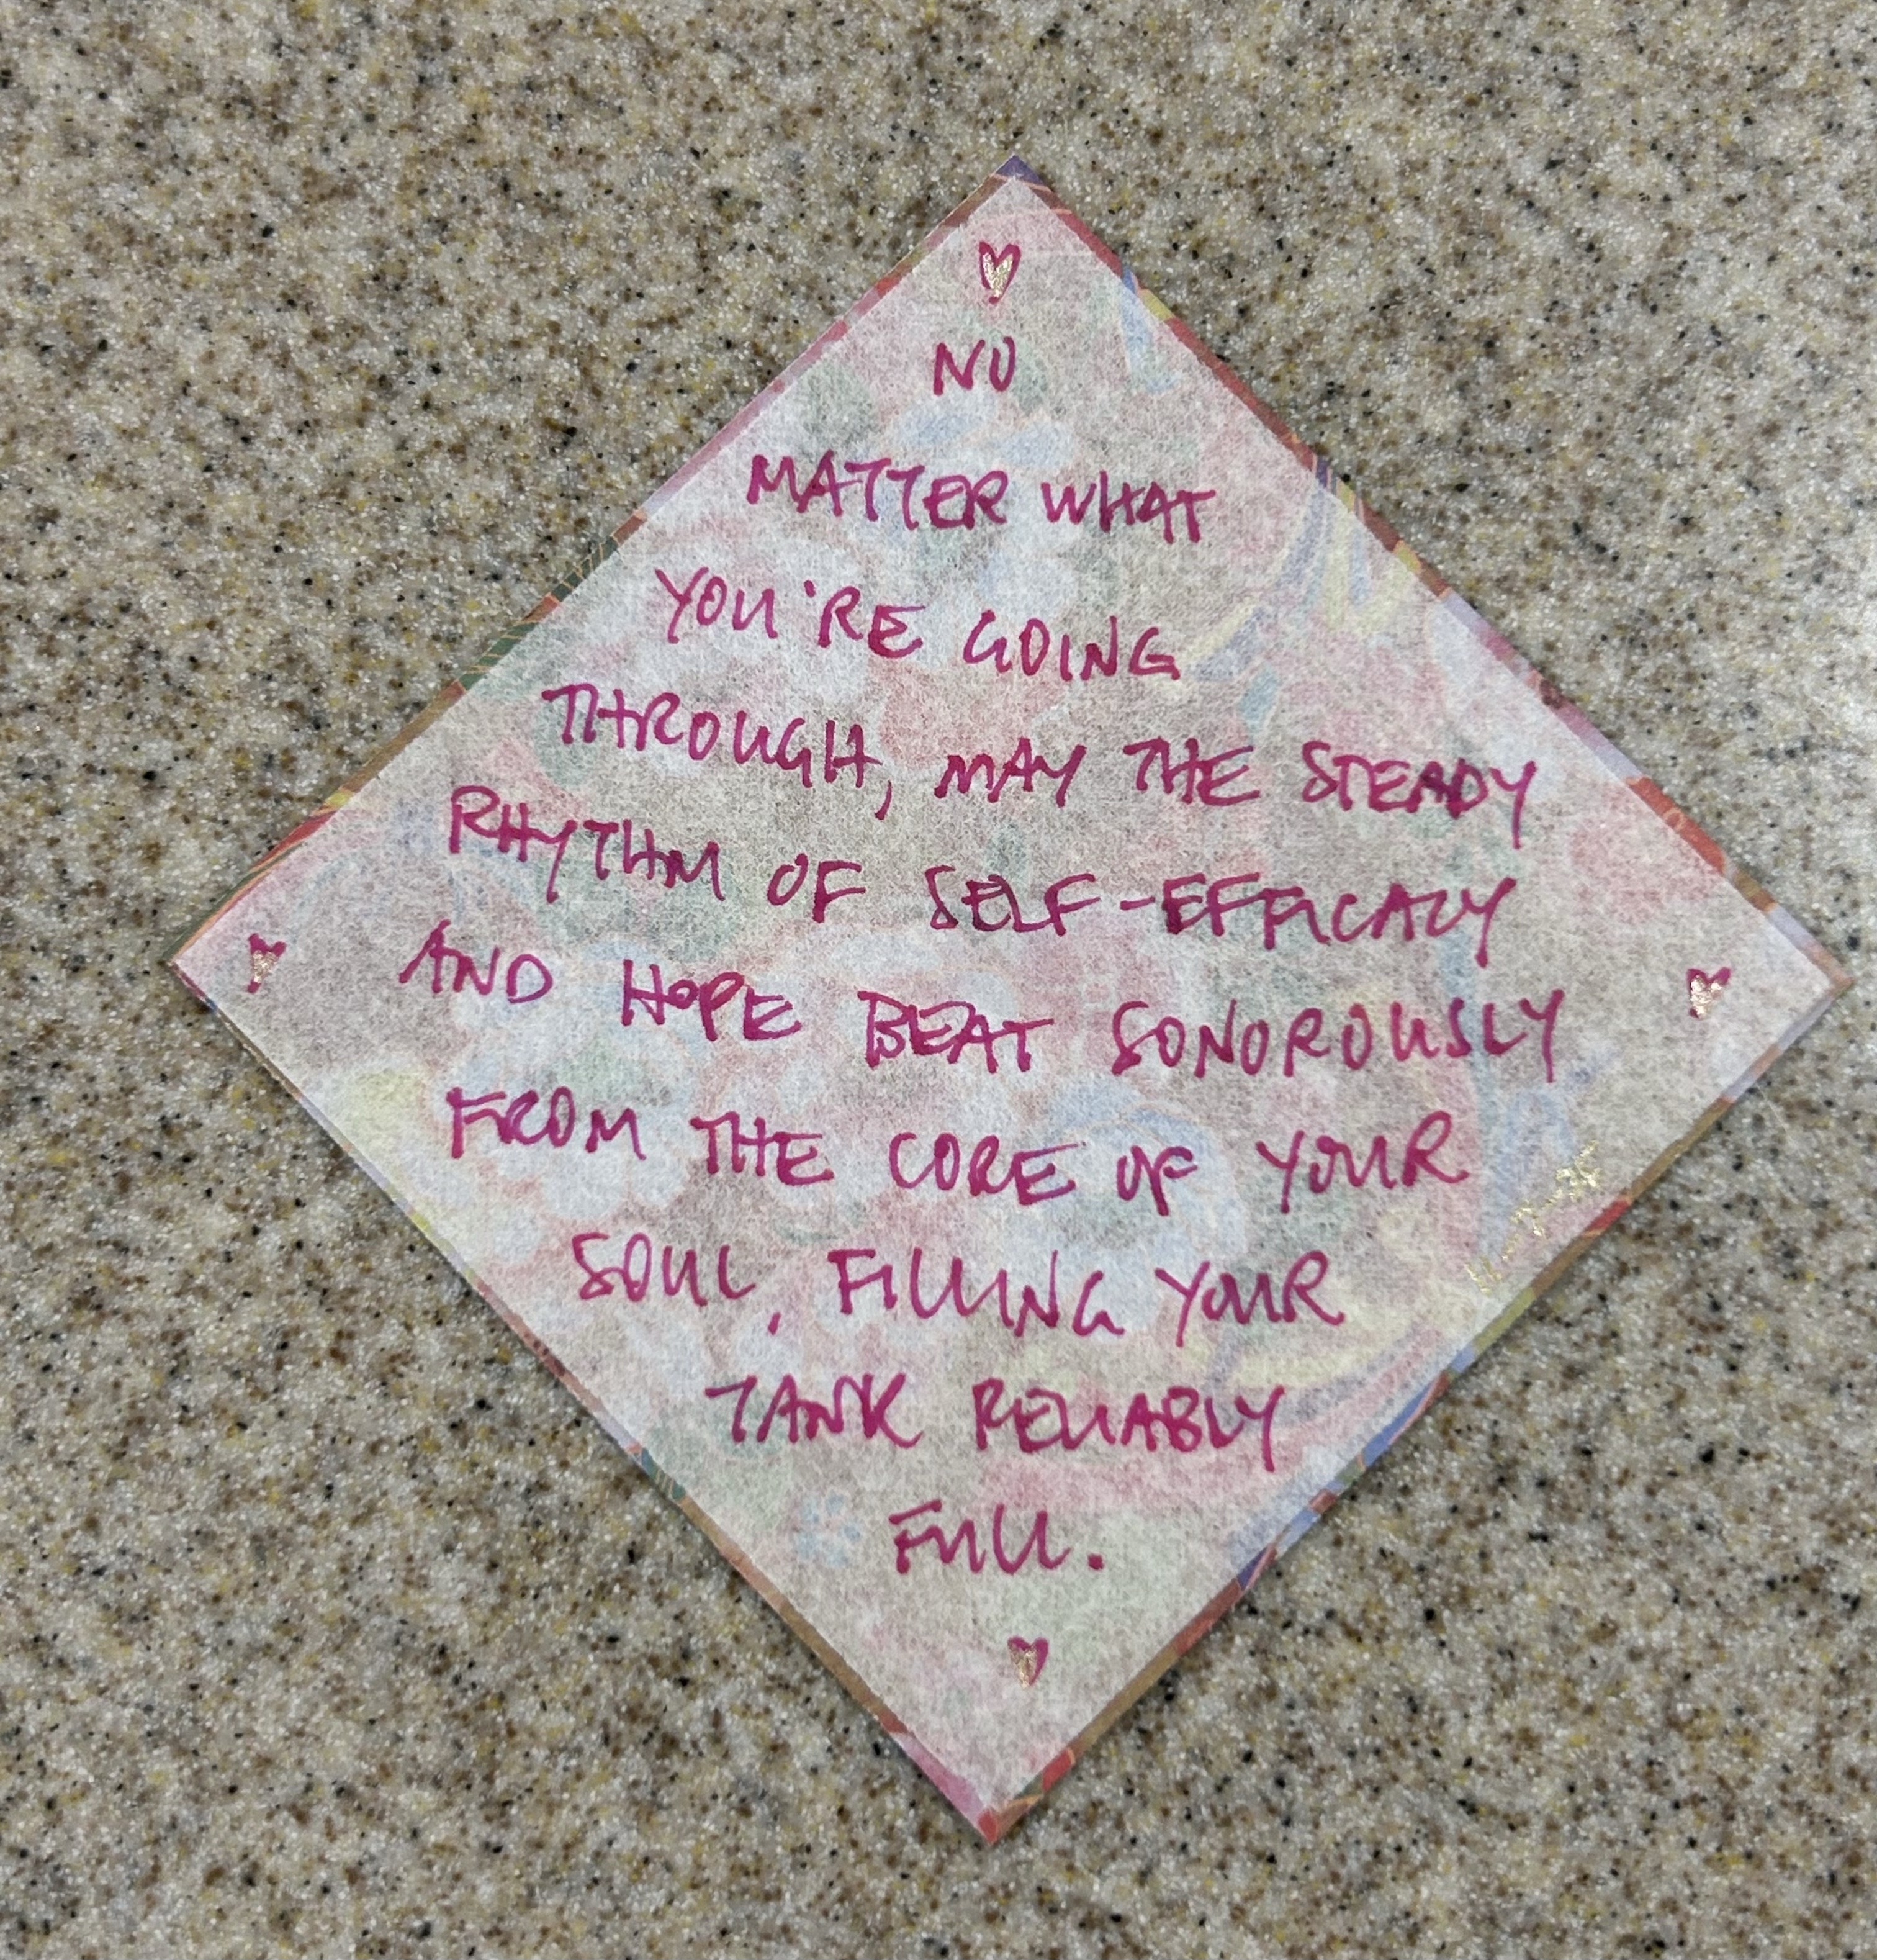 NO
MATTER WHAT
YOU'RE GOING
THROUGH, MAY THE STEADY
RHYTHM OF SELF-EFFICACY
AND HOPE BEAT SONOROUSLY
FROM THE CORE OF YOUR
SOUL, FILLING YOUR
TANK RELIABLY
FULL.